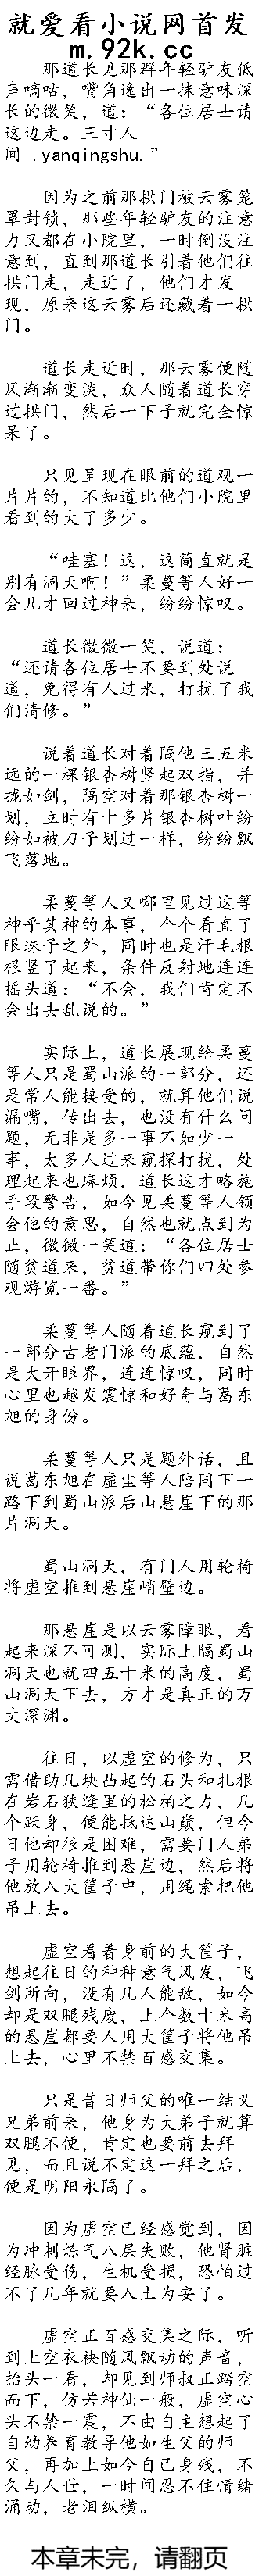 就爱看小说网首发
m.92k.cc
那道长见那群年轻驴友低
声嘀咕，嘴角逸出一抹意味深
长的微笑，道：“各位居士请
这边走。三寸人
间 .yanqingshu.”
因为之前那拱门被云雾笼
罩封锁，那些年轻驴友的注意
力又都在小院里，一时倒没注
意到，直到那道长引着他们往
拱门走，走近了，他们才发
现，原来这云雾后还藏着一拱
门。
道长走近时，那云雾便随
风渐渐变淡，众人随着道长穿
过拱门，然后一下子就完全惊
呆了。
只见呈现在眼前的道观一
片片的，不知道比他们小院里
看到的大了多少。
“哇塞！这，这简直就是
别有洞天啊！”柔蔓等人好一
会儿才回过神来，纷纷惊叹。
道长微微一笑，说道：
“还请各位居士不要到处说
道，免得有人过来，打扰了我
们清修。”
说着道长对着隔他三五米
远的一棵银杏树竖起双指，并
拢如剑，隔空对着那银杏树一
划，立时有十多片银杏树叶纷
纷如被刀子划过一样，纷纷飘
飞落地。
柔蔓等人又哪里见过这等
神乎其神的本事，个个看直了
眼珠子之外，同时也是汗毛根
根竖了起来，条件反射地连连
摇头道：“不会，我们肯定不
会出去乱说的。”
实际上，道长展现给柔蔓
等人只是蜀山派的一部分，还
是常人能接受的，就算他们说
漏嘴，传出去，也没有什么问
题，无非是多一事不如少一
事，太多人过来窥探打扰，处
理起来也麻烦，道长这才略施
手段警告，如今见柔蔓等人领
会他的意思，自然也就点到为
止，微微一笑道：“各位居士
随贫道来，贫道带你们四处参
观游览一番。”
柔蔓等人随着道长窥到了
一部分古老门派的底蕴，自然
是大开眼界，连连惊叹，同时
心里也越发震惊和好奇与葛东
旭的身份。
柔蔓等人只是题外话，且
说葛东旭在虚尘等人陪同下一
路下到蜀山派后山悬崖下的那
片洞天。
蜀山洞天，有门人用轮椅
将虚空推到悬崖峭壁边。
那悬崖是以云雾障眼，看
起来深不可测，实际上隔蜀山
洞天也就四五十米的高度，蜀
山洞天下去，方才是真正的万
丈深渊。
往日，以虚空的修为，只
需借助几块凸起的石头和扎根
在岩石狭缝里的松柏之力，几
个跃身，便能抵达山巅，但今
日他却很是困难，需要门人弟
子用轮椅推到悬崖边，然后将
他放入大筐子中，用绳索把他
吊上去。
虚空看着身前的大筐子，
想起往日的种种意气风发，飞
剑所向，没有几人能敌，如今
却是双腿残废，上个数十米高
的悬崖都要人用大筐子将他吊
上去，心里不禁百感交集。
只是昔日师父的唯一结义
兄弟前来，他身为大弟子就算
双腿不便，肯定也要前去拜
见，而且说不定这一拜之后，
便是阴阳永隔了。
因为虚空已经感觉到，因
为冲刺炼气八层失败，他肾脏
经脉受伤，生机受损，恐怕过
不了几年就要入土为安了。
虚空正百感交集之际，听
到上空衣袂随风飘动的声音，
抬头一看，却见到师叔正踏空
而下，仿若神仙一般，虚空心
头不禁一震，不由自主想起了
自幼养育教导他如生父的师
父，再加上如今自己身残，不
久与人世，一时间忍不住情绪
涌动，老泪纵横。
本章未完，请翻页